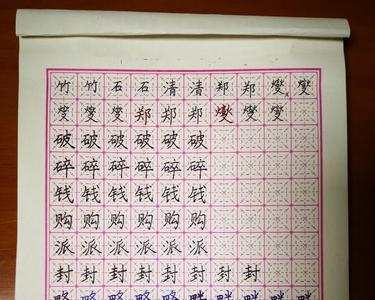 竹竹石石清清郑郑燮燮
燮燮燮郑郑郑燮燮燮
破破破破破破
碎碎碎碎碎碎
钱钱钱钱钱钱
购购购购购购
派派派派派派
封封封封封封封封
略略略略略略畔畔畔畔